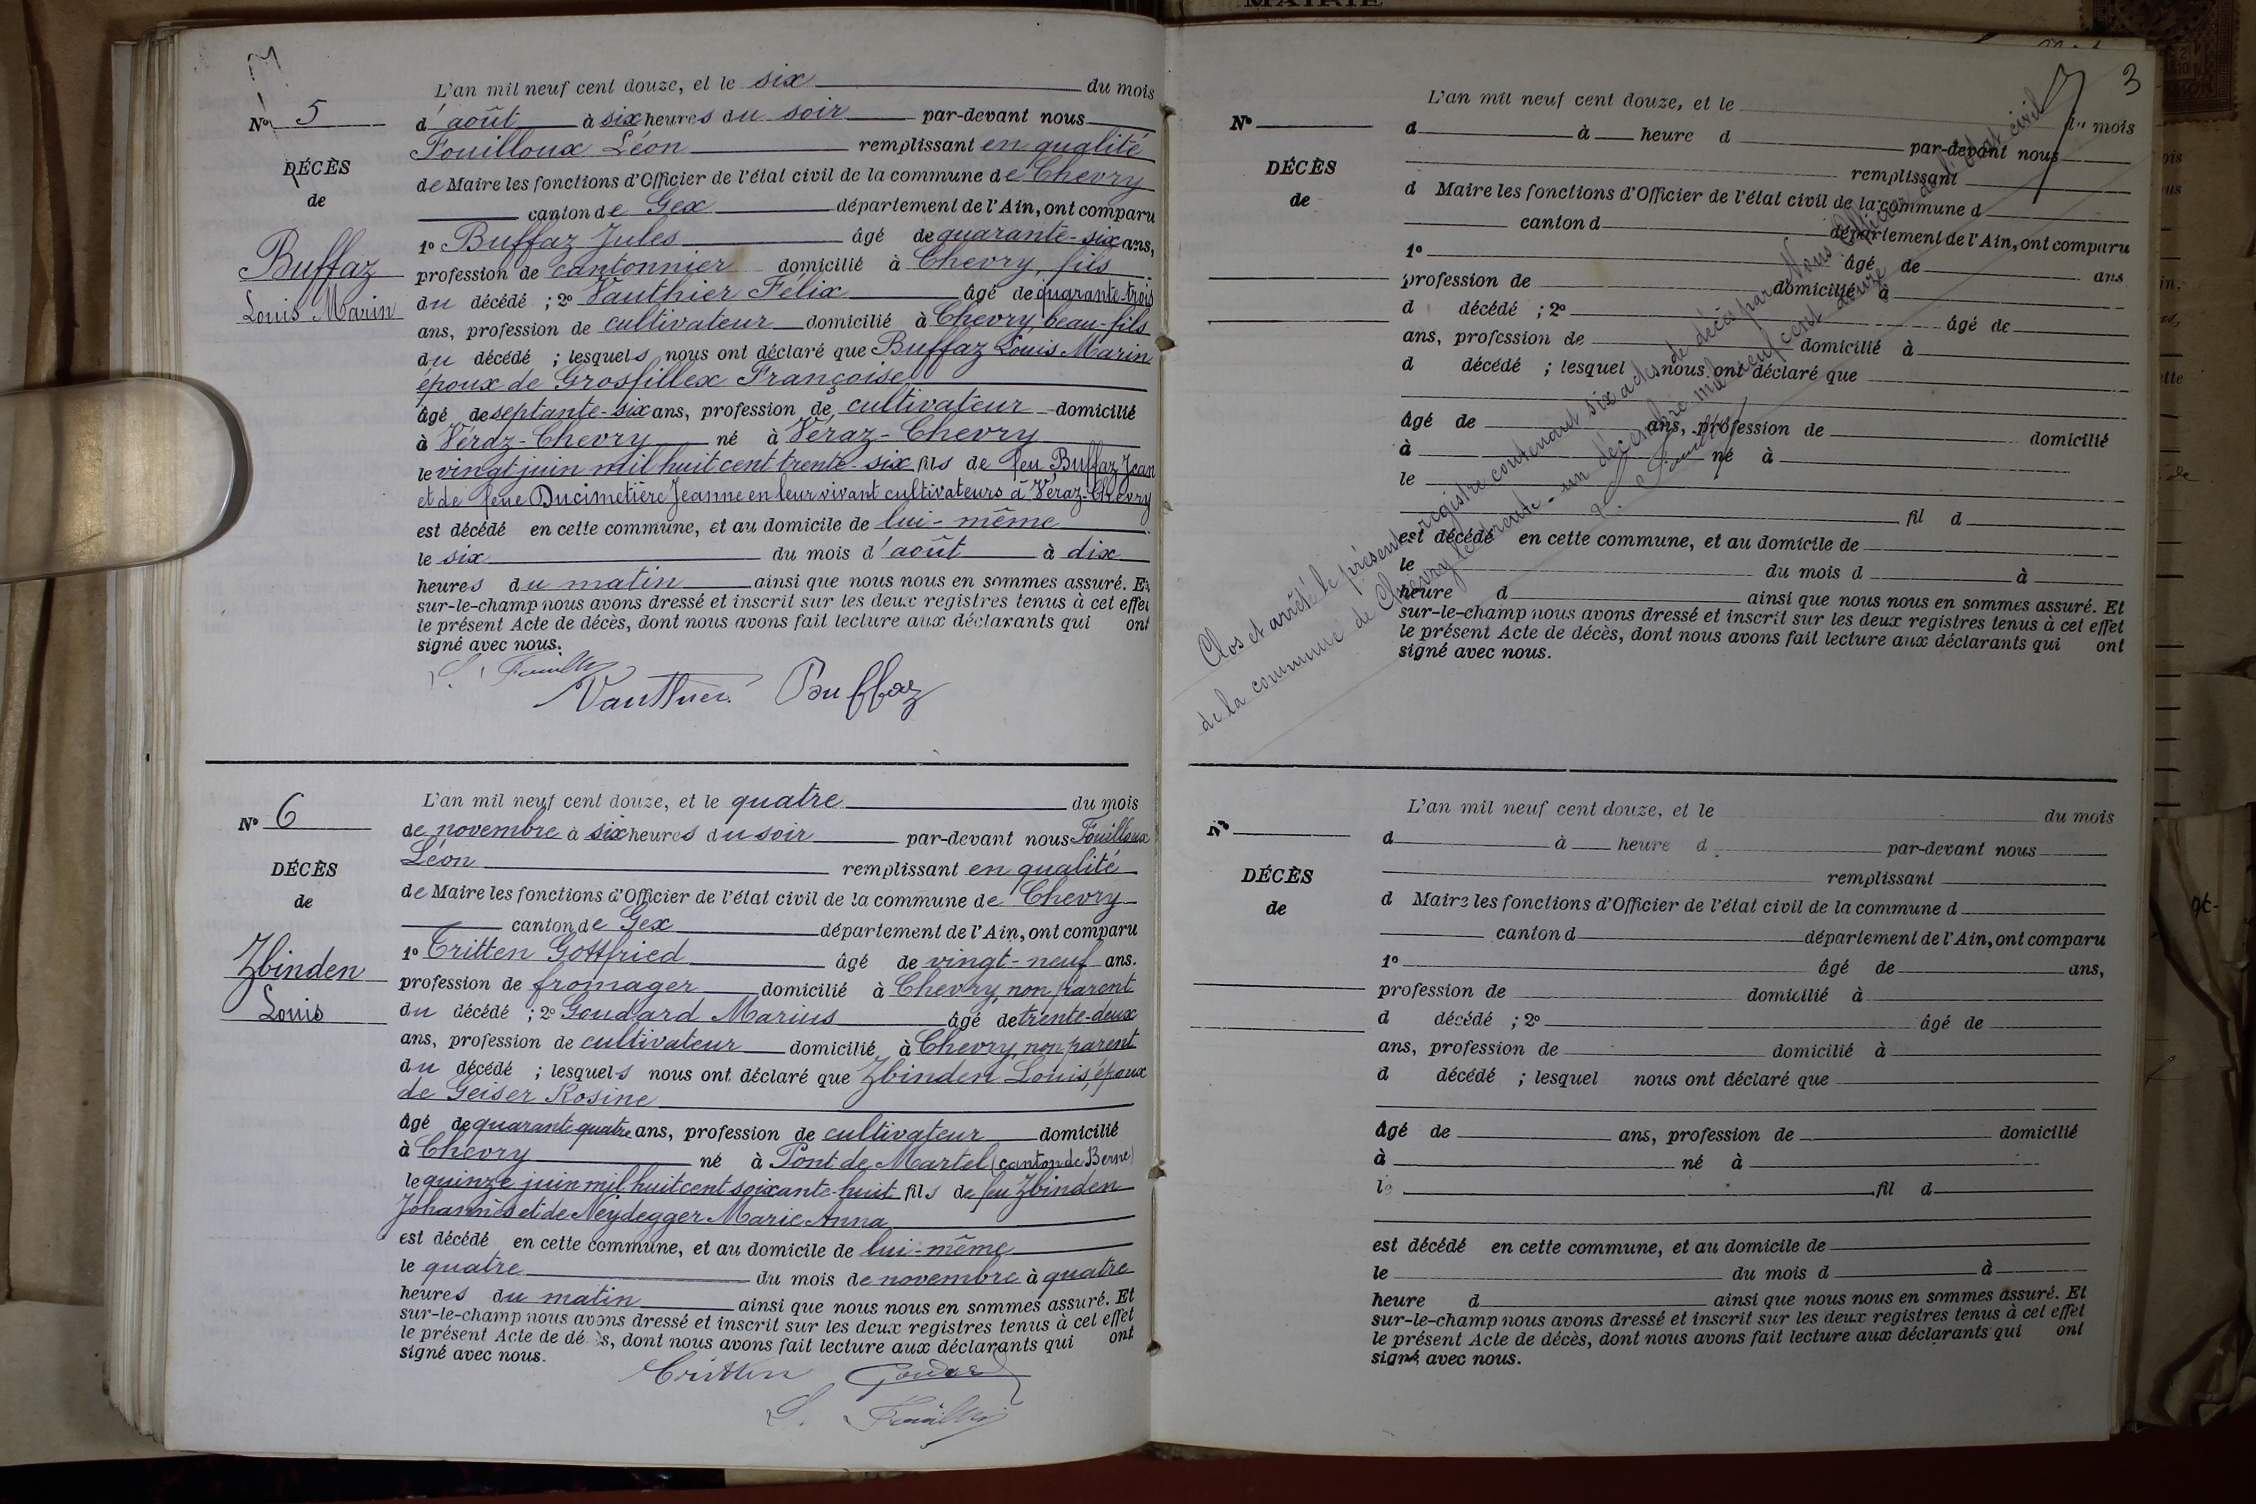 MAIRIE
L'an mil neuf cent douze, et le six du mois
N° 5
d'août à six heures du soir par-devant nous
Fouilloux Léon remplissant en qualité
DÉCÈS
de Maire les fonctions d'Officier de l'état civil de la commune de Chevry
de
canton de Gex département de l'Ain, ont comparu
1° Buffaz Jules âgé de quarante-six ans,
Buffaz
profession de cantonnier domicilié à Chevry, fils
Louis Marin
du décédé ; 2° Vauthier Félix âgé de quarante-trois
ans, profession de cultivateur domicilié à Chevry, beau-fils
du décédé ; lesquels nous ont déclaré que Buffaz Louis Marin
époux de Grosfillex Françoise
âgé de septante-six ans, profession de cultivateur domicilié
à Véraz-Chevry né à Véraz-Chevry
le vingt juin mil huit cent trente-six fils de feu Buffaz Jean
et de feue Ducimetière Jeanne en leur vivant cultivateurs à Véraz-Chevry
est décédé en cette commune, et au domicile de lui-même
le six du mois d'août à dix
heures du matin ainsi que nous nous en sommes assuré. Et
sur-le-champ nous avons dressé et inscrit sur les deux registres tenus à cet effet
le présent Acte de décès, dont nous avons fait lecture aux déclarants qui ont
signé avec nous.
Vauthier Buffaz
L'an mil neuf cent douze, et le quatre du mois
N° 6
de novembre à six heures du soir par-devant nous Fouilloux
Léon remplissant en qualité
DÉCÈS
de Maire les fonctions d'Officier de l'état civil de la commune de Chevry
de
canton de Gex département de l'Ain, ont comparu
1° Tritten Gottfried âgé de vingt-neuf ans.
Zbinden
profession de fromager domicilié à Chevry, non parent
Louis
du décédé ; 2° Goudard Marius âgé de trente-deux
ans, profession de cultivateur domicilié à Chevry, non parent
du décédé ; lesquels nous ont déclaré que Zbinden Louis, époux
de Geiser Rosine
âgé de quarante quatre ans, profession de cultivateur domicilié
à Chevry né à Pont de Martel (canton de Berne)
le quinze juin mil huit cent soixante-huit fils de feu Zbinden
Johannès et de Neydegger Marie Anna
est décédé en cette commune, et au domicile de lui-même
le quatre du mois de novembre à quatre
heures du matin ainsi que nous nous en sommes assuré. Et
sur-le-champ nous avons dressé et inscrit sur les deux registres tenus à cet effet
le présent Acte de décès, dont nous avons fait lecture aux déclarants qui ont
signé avec nous.
Tritten Goudard
3
L'an mil neuf cent douze, et le du mois
N°
d à heure d par-devant nous
remplissant
DÉCÈS
d Maire les fonctions d'Officier de l'état civil de la commune d
de
canton d département de l'Ain, ont comparu
1° âgé de ans
profession de domicilié à
d décédé ; 2° âgé de
ans, profession de domicilié à
d décédé ; lesquel nous ont déclaré que
âgé de ans, profession de domicilié
à né à
le
fil d
est décédé en cette commune, et au domicile de
le du mois d à
heure d ainsi que nous nous en sommes assuré. Et
sur-le-champ nous avons dressé et inscrit sur les deux registres tenus à cet effet
le présent Acte de décès, dont nous avons fait lecture aux déclarants qui ont
signé avec nous.
Clos et arrêté le présent registre contenant six actes de décès par Nous Officier de l'état civil
de la commune de Chevry le trente-un décembre mil neuf cent douze
L'an mil neuf cent douze, et le du mois
N°
d à heure d par-devant nous
remplissant
DÉCÈS
d Maire les fonctions d'Officier de l'état civil de la commune d
de
canton d département de l'Ain, ont comparu
1° âgé de ans,
profession de domicilié à
d décédé ; 2° âgé de
ans, profession de domicilié à
d décédé ; lesquel nous ont déclaré que
âgé de ans, profession de domicilié
à né à
le fil d
est décédé en cette commune, et au domicile de
le du mois d à
heure d ainsi que nous nous en sommes assuré. Et
sur-le-champ nous avons dressé et inscrit sur les deux registres tenus à cet effet
le présent Acte de décès, dont nous avons fait lecture aux déclarants qui ont
signé avec nous.